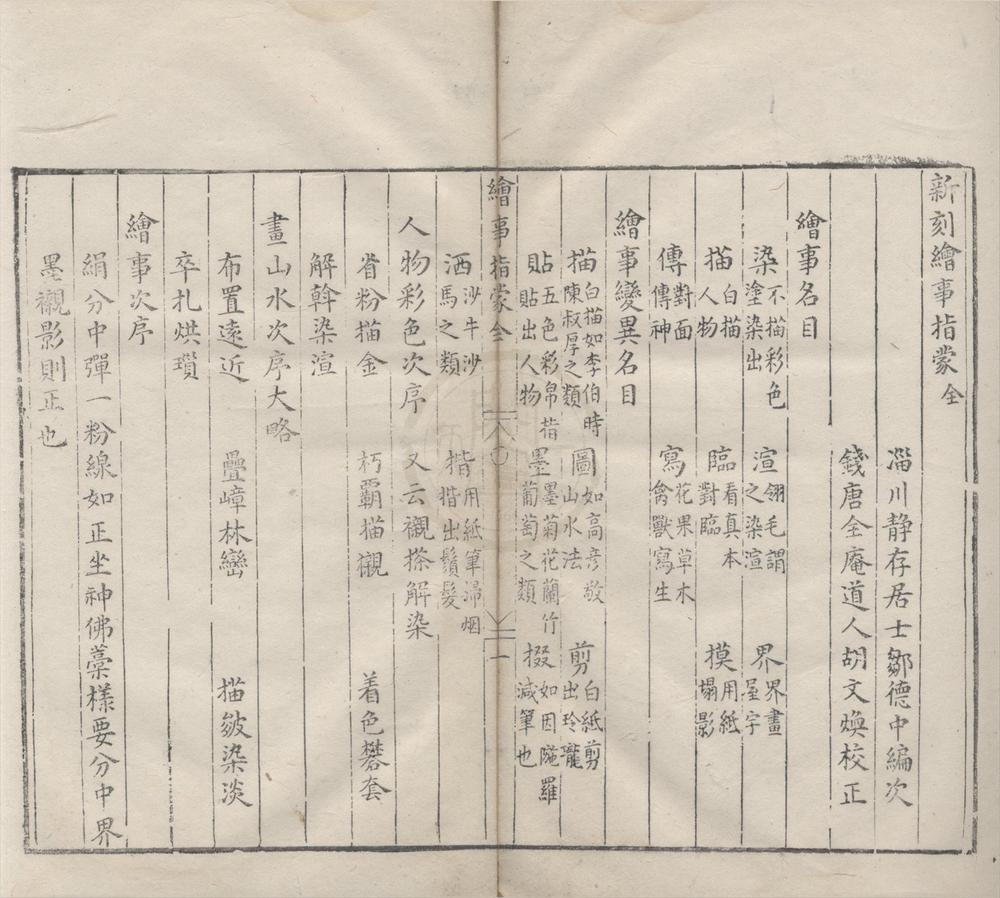 新刻繪事指蒙全
淄川靜存居士鄒德中編次
錢唐全庵道人胡文煥校正
繪事名目
染不描彩色塗染出 渲翎毛謂之染渲 界界畫屋字
描白描人物 臨看真本對臨 摸用紙搨影
傳對面傳神 寫花果草木禽獸寫生
繪事變異名目
描白描如李伯時陳叔厚之類 圖如高彥敬山水法 剪白紙剪出玲瓏
貼五色彩帛指貼出人物 墨墨菊花蘭竹葡萄之類 掇如因陁羅減筆也
繪事指蒙全 一
洒沙牛沙馬之類 揩用紙筆烟揩出鬚髮
人物彩色次序 又云襯搽解染
省粉描金 朽覇描襯 着色礬套
解斡染渲
畫山水次序大略
布置遠近 疊嶂林巒 描皴染淡
卒扎烘瓚
繪事次序
絹分中彈一粉線如正坐神佛藁樣要分中界
墨襯影則正也